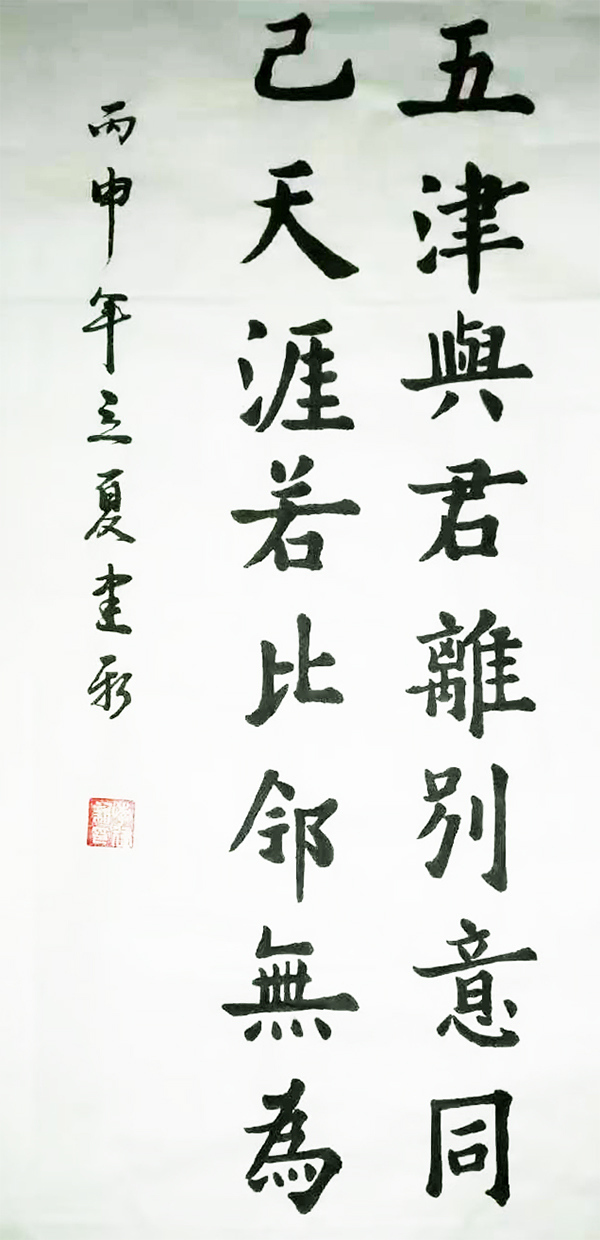 五津與君離別意同
己天涯若比邻無為
丙申年立夏建新